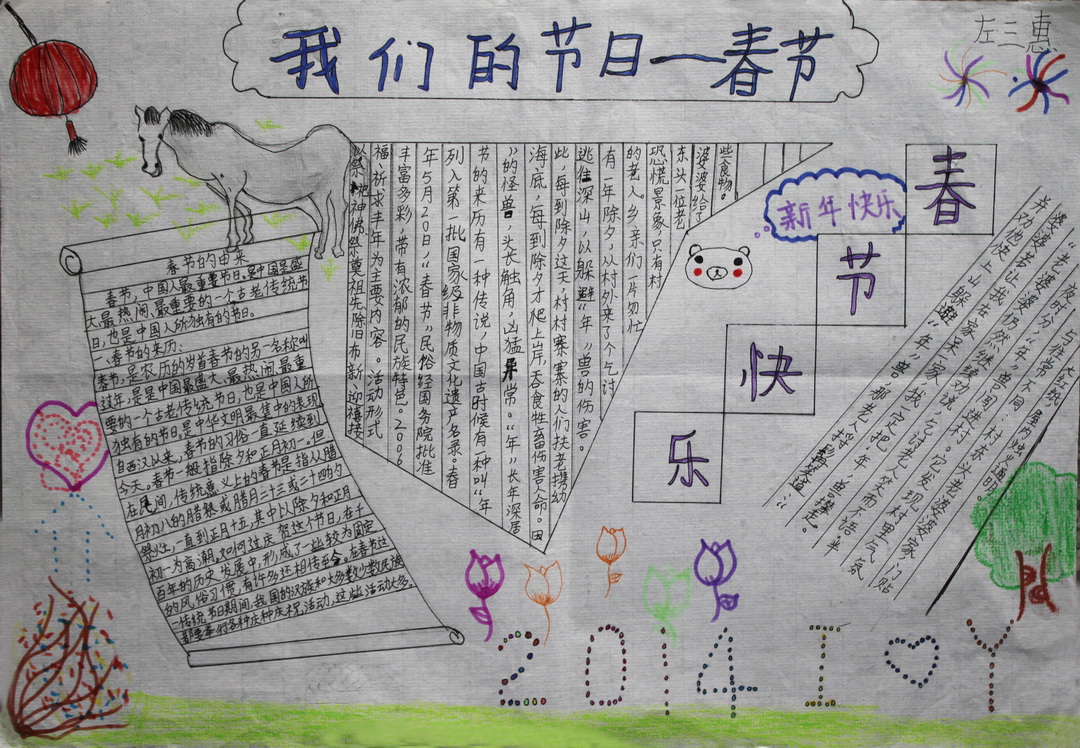 我们的节日—春节
左三惠
春节的由来
春节,中国人最重要节日。是中国最盛
大、最热闹、最重要的一个古老传统节
日,也是中国人所独有的节日。
一、春节的来历:
春节,是农历的岁首春节的另一名称叫
过年,是是中国最盛大、最热闹、最重
要的一个古老传统节日,也是中国人所
独有的节日。是中华文明最集中的表现
自西汉以来,春节的习俗一直延续到
今天。春节一般指除夕和正月初一。但
在民间,传统意义上的春节是指从腊
月初八的腊祭或腊月二十三或二十四的
祭灶,一直到正月十五,其中以除夕和正月
初一为高潮。如何过庆贺这个节日,在千
百年的历史发展中,形成了一些较为固定
的风俗习惯,有许多还相传至今。在春节这
一传统节日期间,我国的汉族和大多数少数民族
都要举行各种庆祝活动,这些活动大多
以祭祀神佛祭奠祖先除旧布新迎禧接
福、祈求丰年为主要内容。活动形式
丰富多彩,带有浓郁的民族特色。2006
年5月20日,“春节”民俗经国务院批准
列入第一批国家级非物质文化遗产名录。春
节的来历有一种传说,中国古时候有一种叫“年
”的怪兽,头长触角,凶猛异常。“年”长年深居
海底,每到除夕才爬上岸,吞食牲畜伤害人命。因
此,每到除夕这天,村村寨寨的人们扶老携幼
逃往深山,以躲避“年”兽的伤害。
有一年除夕,从村外来了个乞讨
的老人,乡亲们一片匆忙
恐慌景象,只有村
东头一位老
婆婆给了
些食物。
新年快乐
春
节
快
乐
老婆婆
并劝他快上山躲避“年”兽
婆婆仍然继续劝说,乞讨老人笑而不语
“年”兽闯进村。它发现村里气氛
村东头老婆婆家,门贴
2014 I Y